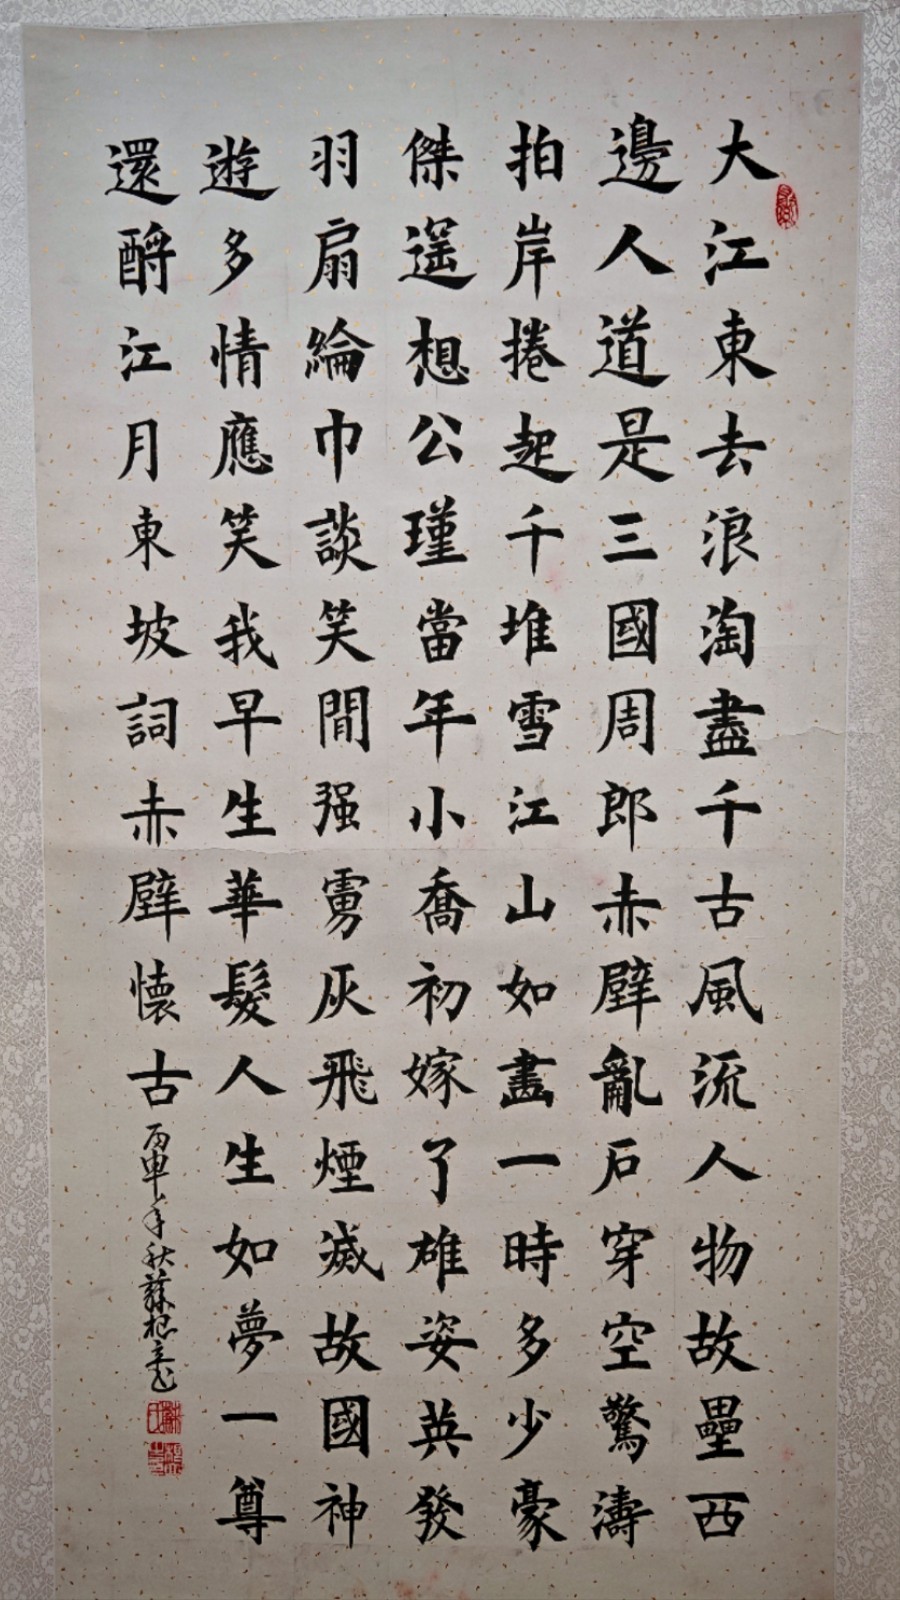 大江東去浪淘盡千古風流人物故壘西
邊人道是三國周郎赤壁亂石穿空驚濤
拍岸捲起千堆雪江山如畫一時多少豪
傑遙想公瑾當年小喬初嫁了雄姿英發
羽扇綸巾談笑間强虜灰飛煙滅故國神
遊多情應笑我早生華髮人生如夢一尊
還酹江月東坡詞赤壁懷古丙申年秋蘇